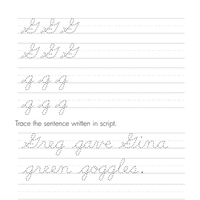 G G G
G G G
g g g
g g g
Trace the sentence written in script.
Greg gave Gina
green goggles.